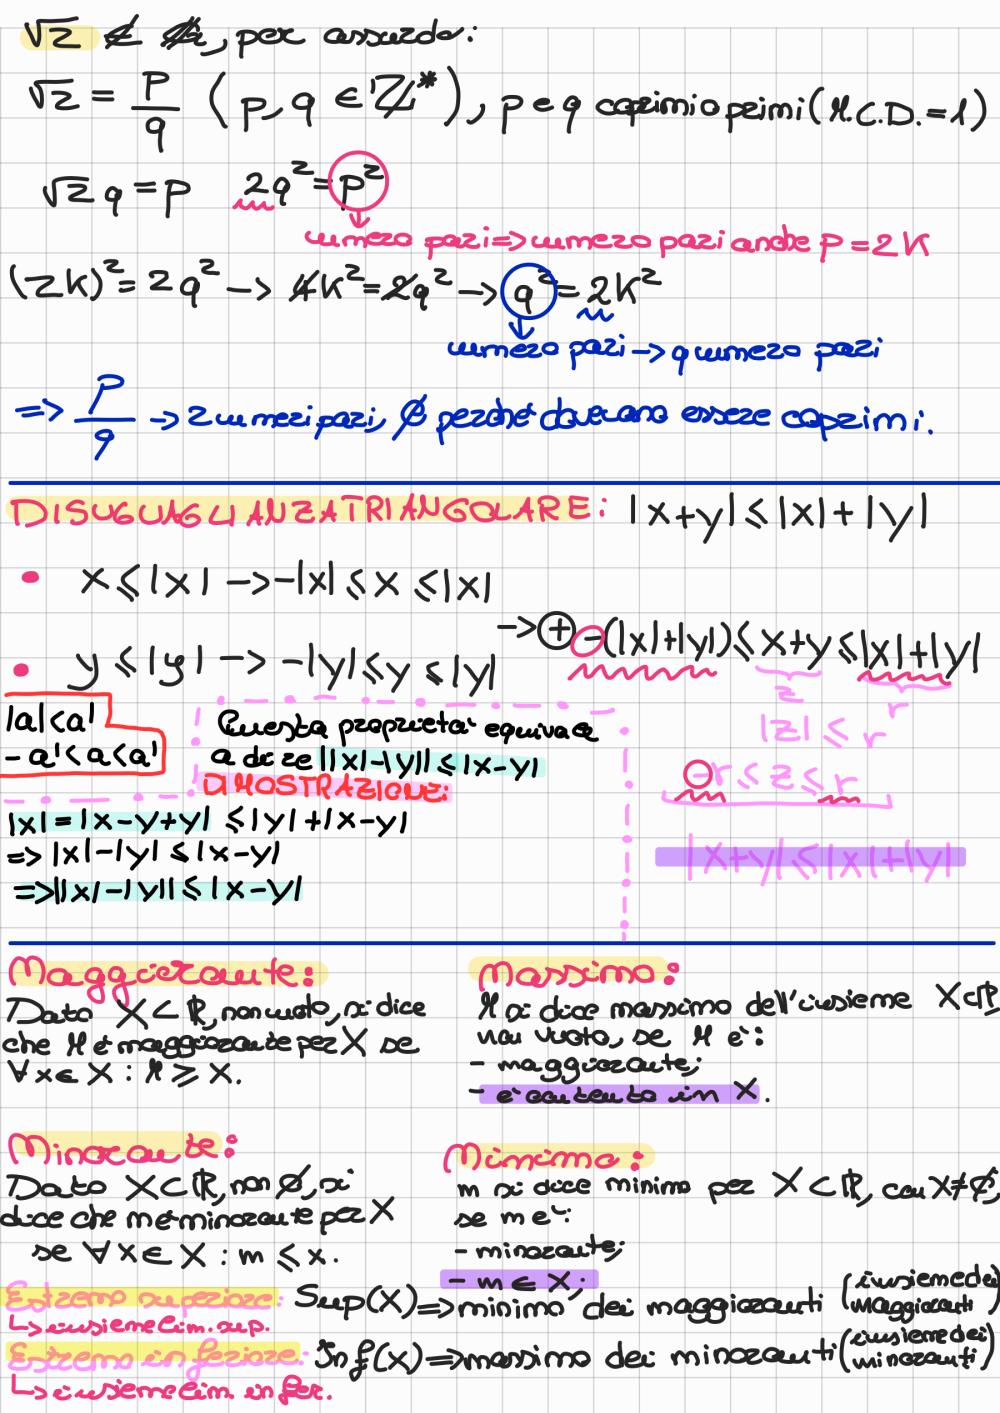 √2 ∉ ℚ, per assurdo:
√2 = p/q (p, q ∈ ℤ*), p e q coprimi o primi (M.C.D. = 1)
√2 q = p 2q² = p²
numero pari => numero pari anche p = 2K
(2K)² = 2q² -> 4K² = 2q² -> q² = 2K²
numero pari -> q numero pari
=> p/q -> 2 numeri pari, ∅ perché dovevano essere coprimi.
DISUGUAGLIANZA TRIANGOLARE: |x+y| ≤ |x| + |y|
• x ≤ |x| -> -|x| ≤ x ≤ |x|
-> ⊕ -(|x|+|y|) ≤ x+y ≤ |x|+|y|
• y ≤ |y| -> -|y| ≤ y ≤ |y|
z r
|z| ≤ r
-r ≤ z ≤ r
|x+y| ≤ |x|+|y|
|a|<a'
-a'<a<a'
Questa proprieta' equivale
a dire ||x|-|y|| ≤ |x-y|
DIMOSTRAZIONE:
|x| = |x-y+y| ≤ |y| + |x-y|
=> |x|-|y| ≤ |x-y|
=> ||x|-|y|| ≤ |x-y|
Maggiorante:
Dato X ⊂ ℝ, non vuoto, si dice
che M è maggiorante per X se
∀ x ∈ X : M ≥ x.
Massimo:
M si dice massimo dell'insieme X ⊂ ℝ
non vuoto, se M e':
- maggiorante;
- e' contenuto in X.
Minorante:
Dato X ⊂ ℝ, non ∅, si
dice che m è minorante per X
se ∀ x ∈ X : m ≤ x.
Minimo:
m si dice minimo per X ⊂ ℝ, con X ≠ ∅,
se m e':
- minorante;
- m ∈ X;
Estremo superiore: Sup(X) => minimo dei maggioranti (insieme dei maggioranti)
↳ insieme lim. sup.
Estremo inferiore: Inf(x) => massimo dei minoranti (insieme dei minoranti)
↳ insieme lim. infer.